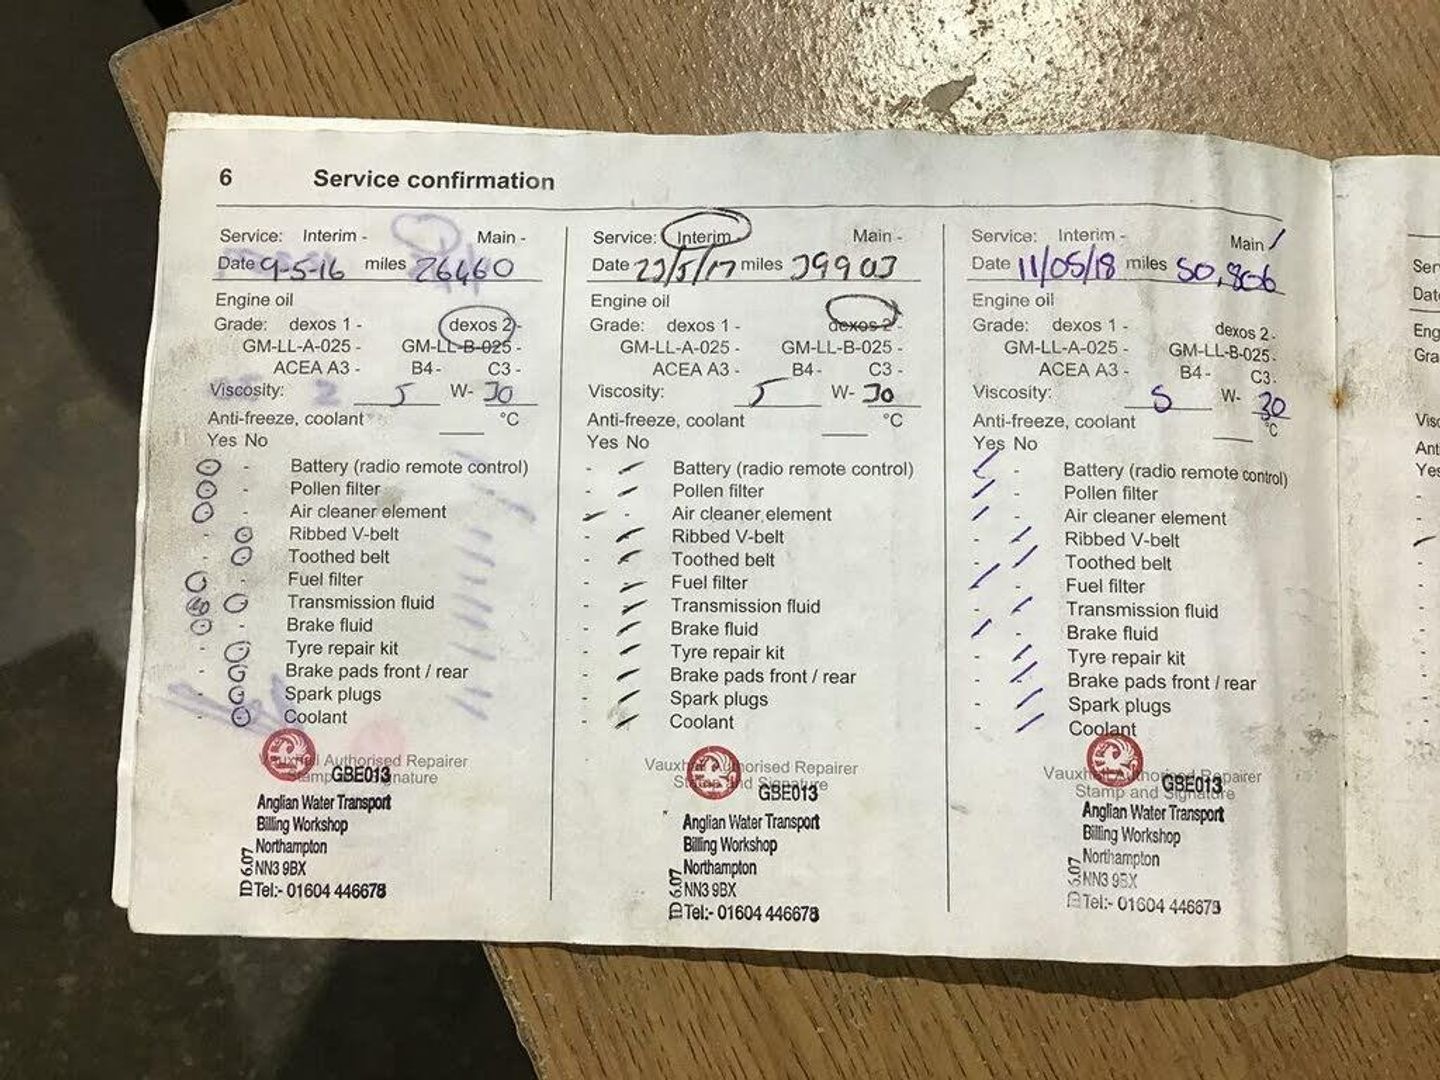 6 Service confirmation
Service: Interim - Main -
Date 9-5-16 miles 26460
Engine oil
Grade: dexos 1 - dexos 2 -
GM-LL-A-025 - GM-LL-B-025 -
ACEA A3 - B4 - C3 -
Viscosity: 5 W- 30
Anti-freeze, coolant °C
Yes No
Battery (radio remote control)
Pollen filter
Air cleaner element
Ribbed V-belt
Toothed belt
Fuel filter
Transmission fluid
Brake fluid
Tyre repair kit
Brake pads front / rear
Spark plugs
Coolant
Vauxhall Authorised Repairer
GBE013
Anglian Water Transport
Billing Workshop
Northampton
NN3 9BX
Tel:- 01604 446678
ID 6.07
Service: Interim Main -
Date 23/5/17 miles 39903
Engine oil
Grade: dexos 1 - dexos 2 -
GM-LL-A-025 - GM-LL-B-025 -
ACEA A3 - B4 - C3 -
Viscosity: 5 W- 30
Anti-freeze, coolant °C
Yes No
Battery (radio remote control)
Pollen filter
Air cleaner element
Ribbed V-belt
Toothed belt
Fuel filter
Transmission fluid
Brake fluid
Tyre repair kit
Brake pads front / rear
Spark plugs
Coolant
Vauxhall Authorised Repairer
Stamp and Signature
GBE013
Anglian Water Transport
Billing Workshop
Northampton
NN3 9BX
Tel:- 01604 446678
ID 6.07
Service: Interim - Main /
Date 11/05/18 miles 50,806
Engine oil
Grade: dexos 1 - dexos 2 -
GM-LL-A-025 - GM-LL-B-025 -
ACEA A3 - B4 - C3 -
Viscosity: 5 W- 30
Anti-freeze, coolant °C
Yes No
Battery (radio remote control)
Pollen filter
Air cleaner element
Ribbed V-belt
Toothed belt
Fuel filter
Transmission fluid
Brake fluid
Tyre repair kit
Brake pads front / rear
Spark plugs
Coolant
Vauxhall Authorised Repairer
Stamp and Signature
GBE013
Anglian Water Transport
Billing Workshop
Northampton
NN3 9BX
Tel:- 01604 446678
ID 6.07